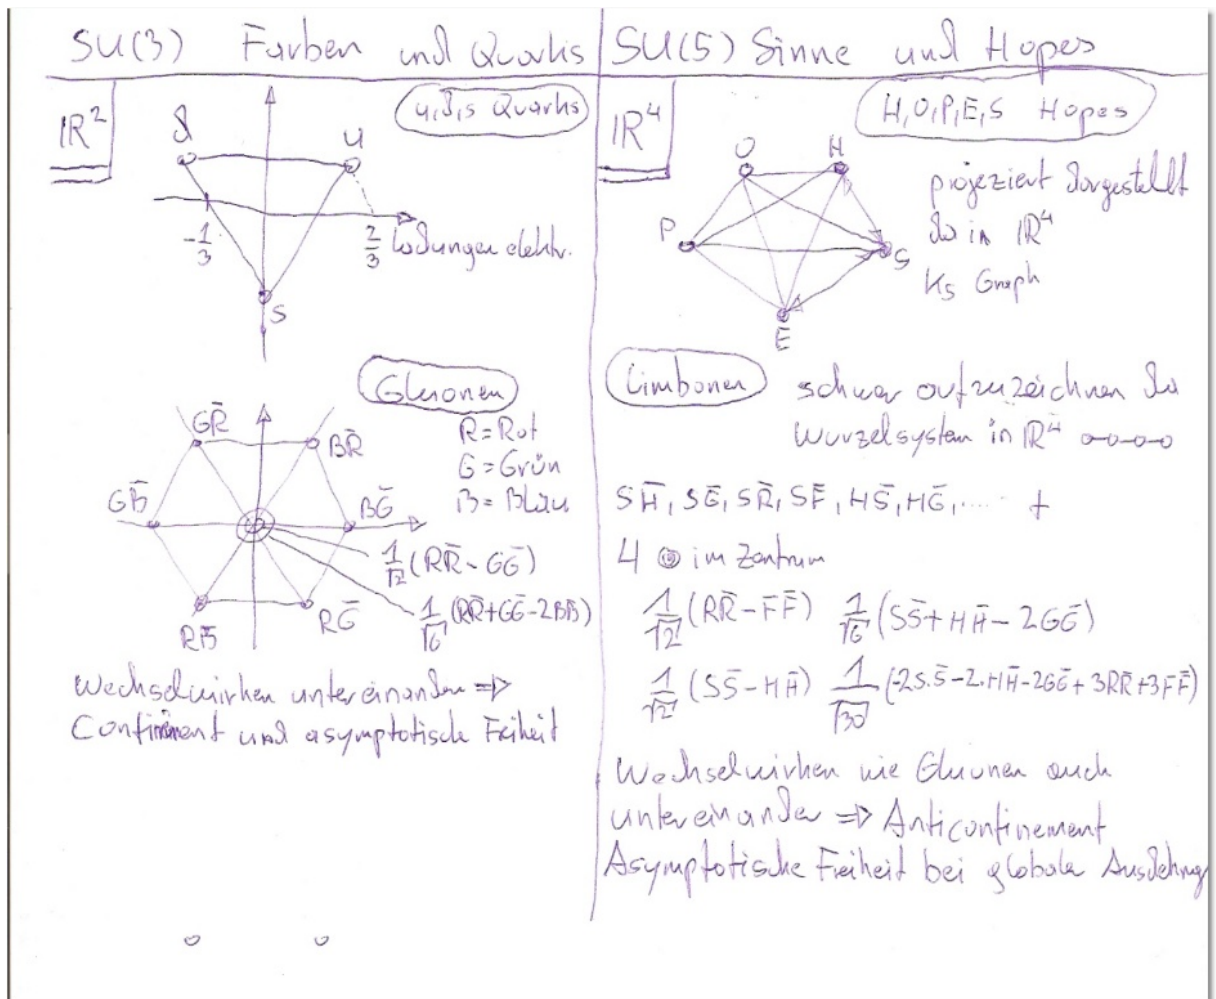 SU(3) Farben und Quarks
ℝ²
u,d,s Quarks
d
u
-1/3
2/3 Ladungen elektr.
s
Gluonen
R=Rot
G=Grün
B=Blau
GR̄
BR̄
GB̄
BḠ
1/√2 (RR̄ - GḠ)
1/√6 (RR̄+GḠ-2BB̄)
RB̄
RḠ
Wechselwirken untereinander ⇒
Confinment und asymptotische Freiheit
SU(5) Sinne und Hopes
ℝ⁴
H,O,P,E,S Hopes
O
H
P
S
E
projeziert dargestellt
da in ℝ⁴
K5 Graph
Limbonen
schwer aufzuzeichnen da
Wurzelsystem in ℝ⁴ o-o-o-o
SH̄, SḠ, SR̄, SF̄, HS̄, HḠ, ..... +
4 ⊚ im Zentrum
1/√2 (RR̄ - FF̄) 1/√6 (SS̄ + HH̄ - 2GḠ)
1/√2 (SS̄ - HH̄) 1/√30 (-2S.S̄ - 2.HH̄ - 2GḠ + 3RR̄ + 3FF̄)
Wechselwirken wie Gluonen auch
untereinander ⇒ Anticonfinement
Asymptotische Freiheit bei globaler Ausdehnung